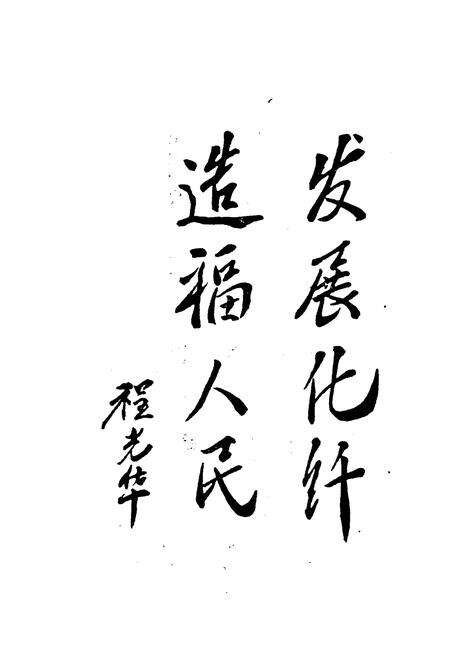 发展化纤
造福人民
程光华